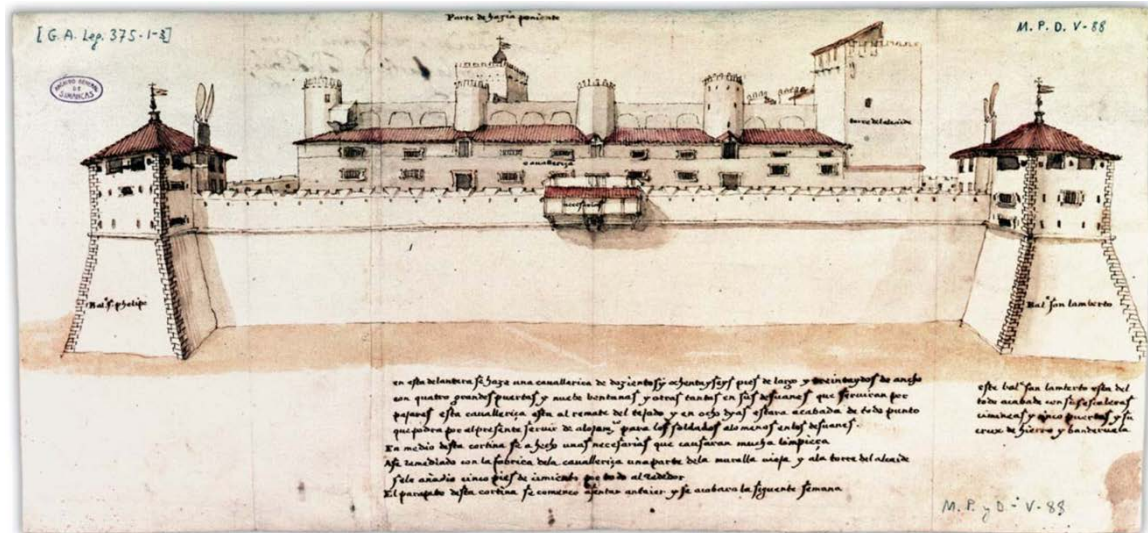 Parte de hazia poniente
[G. A. Leg. 375-1-3]
M. P. D. V-88
ARCHIVO GENERAL
DE
SIMANCAS
torre del alcaide
cavalleriza
necesarias
Bal.te S. phelipe
Bal.te san lamberto
en esta delantera se haze una cavalleriza de dozientos y ochenta y seys pies de largo y treinta y dos de ancho
con quatro grandes puertas y nuebe bentanas y otras tantas en sus desuanes que serviran por
pajares esta cavalleriza esta al remate del tejado y en ocho dyas estara acabada de todo punto
que podra por el presente servir de alojam.to para los soldados alomenos en los desuanes.
En medio desta cortina se a hecho unas necesarias que causaran mucha limpieça
Ase remediado con la fabrica de la cavalleriza una parte de la muralla vieja y a la torre del alcaide
se le añadio cinco pies de cimiento por todo al rededor
El parapeto desta cortina se començo asentar antaier y se acabara la siguente semana
este bal.te san lamberto esta del
todo acabado con sus escaleras
cimineas y cinco puertas y su
cruz de hierro y banderuela
M. P. y D. - V-88